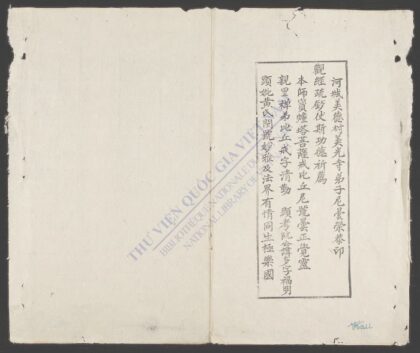 河城美德村美光寺弟子尼曇榮恭印
觀經疏鈔使斯功德祈薦
本師寶蟾塔菩薩戒比丘尼號曇正覺靈
親里禪弟比丘戒字清勤 顯考阮公諱多字福男
顯妣黃氏閑號妙雅及法界有情同生極樂國
THƯ VIỆN QUỐC GIA VIỆT NAM
BIBLIOTHÈQUE NATIONALE DU VIETNAM
NATIONAL LIBRARY OF VIETNAM